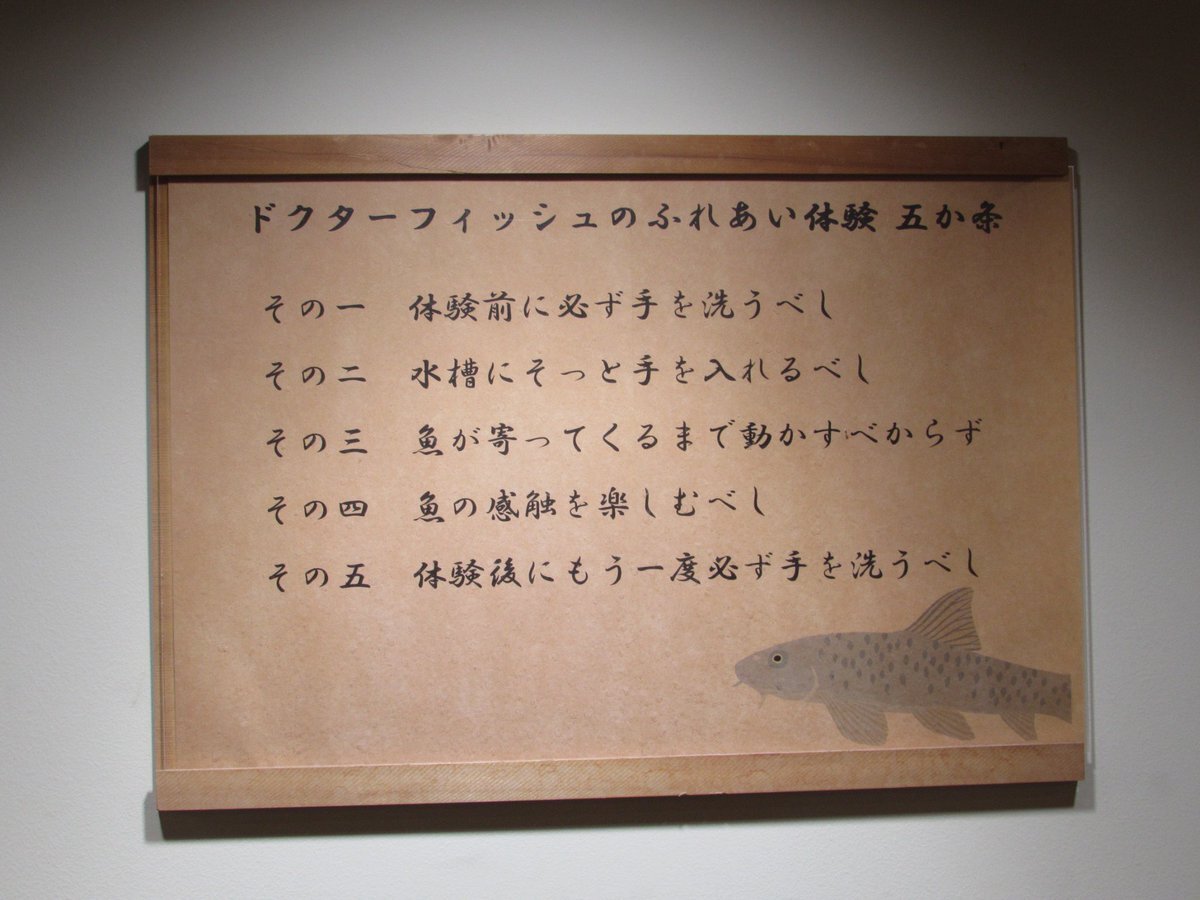 ドクターフィッシュのふれあい体験 五か条
その一 体験前に必ず手を洗うべし
その二 水槽にそっと手を入れるべし
その三 魚が寄ってくるまで動かすべからず
その四 魚の感触を楽しむべし
その五 体験後にもう一度必ず手を洗うべし